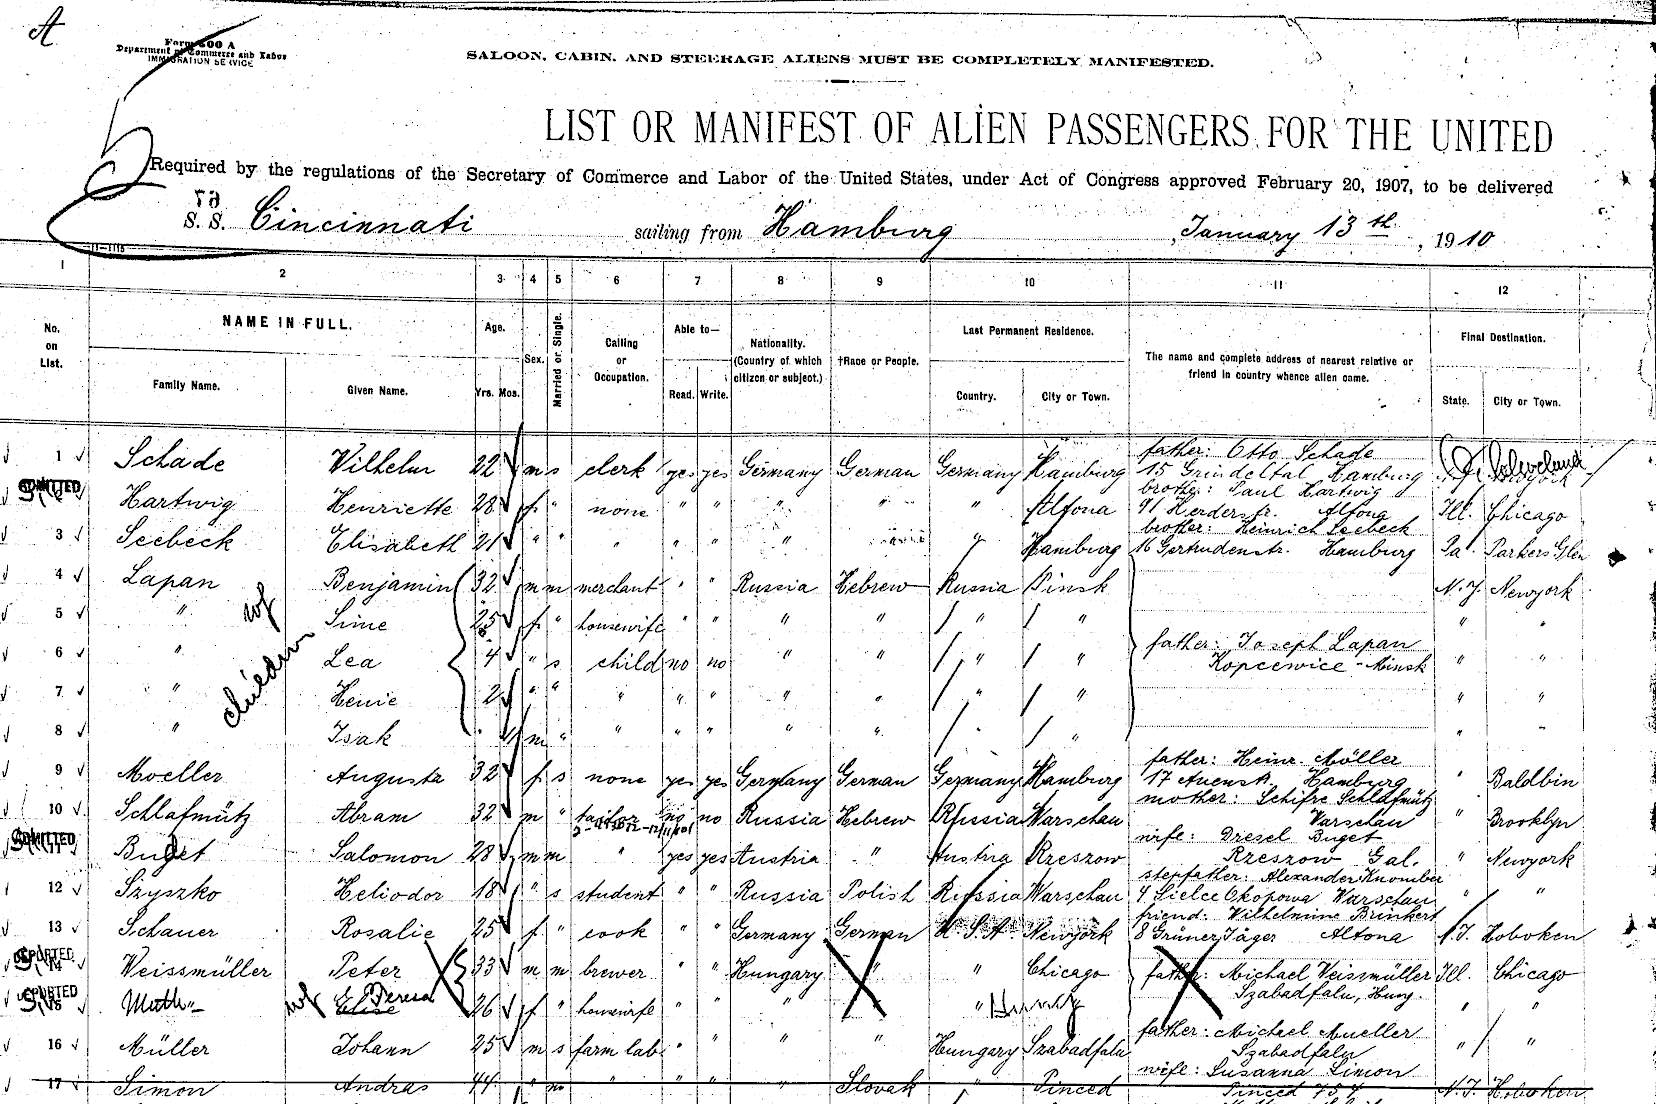 A
Form 500 A
Department of Commerce and Labor
IMMIGRATION SERVICE
SALOON, CABIN, AND STEERAGE ALIENS MUST BE COMPLETELY MANIFESTED.
LIST OR MANIFEST OF ALIEN PASSENGERS FOR THE UNITED
Required by the regulations of the Secretary of Commerce and Labor of the United States, under Act of Congress approved February 20, 1907, to be delivered
S. S. Cincinnati sailing from Hamburg , January 13th , 1910
1 2 3 4 5 6 7 8 9 10 11 12
No. on List. NAME IN FULL. Family Name. Given Name. Age. Yrs. Mos. Sex. Married or Single. Calling or Occupation. Able to— Read. Write. Nationality. (Country of which citizen or subject.) †Race or People. Last Permanent Residence. Country. City or Town. The name and complete address of nearest relative or friend in country whence alien came. Final Destination. State. City or Town.
1 Schade Wilhelm 22 m s clerk yes yes Germany German Germany Hamburg father: Otto Schade 15 Grindeltal Hamburg Cleveland
ADMITTED Hartwig Henriette 28 f " none " " " " " Altona brother: Paul Hartwig 91 Herderstr. Altona Ill. Chicago
3 Seebeck Elisabeth 21 " " " " " " " Hamburg brother: Heinrich Seebeck 16 Gertrudenstr. Hamburg Pa. Parkers Glen
4 Lapan Benjamin 32 m m merchant " " Russia Hebrew Russia Pinsk N.Y. Newyork
5 " wf Sime 25 f " housewife " " " " " " " "
6 " children Lea 4 " s child no no " " " " father: Joseph Lapan Kopcewice - Minsk " "
7 " Henie 2 " " " " " " " " " " "
8 " Isak m " " " " " " " " "
9 Moeller Augusta 32 f s none yes yes Germany German Germany Hamburg father: Heinr. Möller Hamburg " Baldbin
10 Schlafmütz Abram 32 m " tailor no no Russia Hebrew Russia Warschau mother: Schifre Schlafmütz Warschau " Brooklyn
ADMITTED Buget Salomon 28 m m " yes yes Austria " Austria Rzeszow wife: Dresel Buget Rzeszow Gal. " Newyork
12 Szyszko Heliodor 18 " s student " " Russia Polish Russia Warschau stepfather: Alexander 4 Sielce Okopowa Warschau " "
13 Schauer Rosalie 25 f " cook " " Germany German U.S.A. Newyork friend: Wilhelmine Brinkert 8 Grüner Jäger Altona N.J. Hoboken
DEPORTED 14 Weissmüller Peter 33 m m brewer " " Hungary " " Chicago father: Michael Weissmüller Szabadfalu, Hung. Ill. Chicago
DEPORTED 15 wf Elise Teresa 26 f " housewife " " " " " " "
16 Müller Johann 25 m s farm lab " " " " Hungary Szabadfalu father: Michael Mueller Szabadfalu " "
17 Simon Andras 44 " m " " " " Slovak " Pinced wife: Susanna Simon Pinced 754 N.J. Hoboken